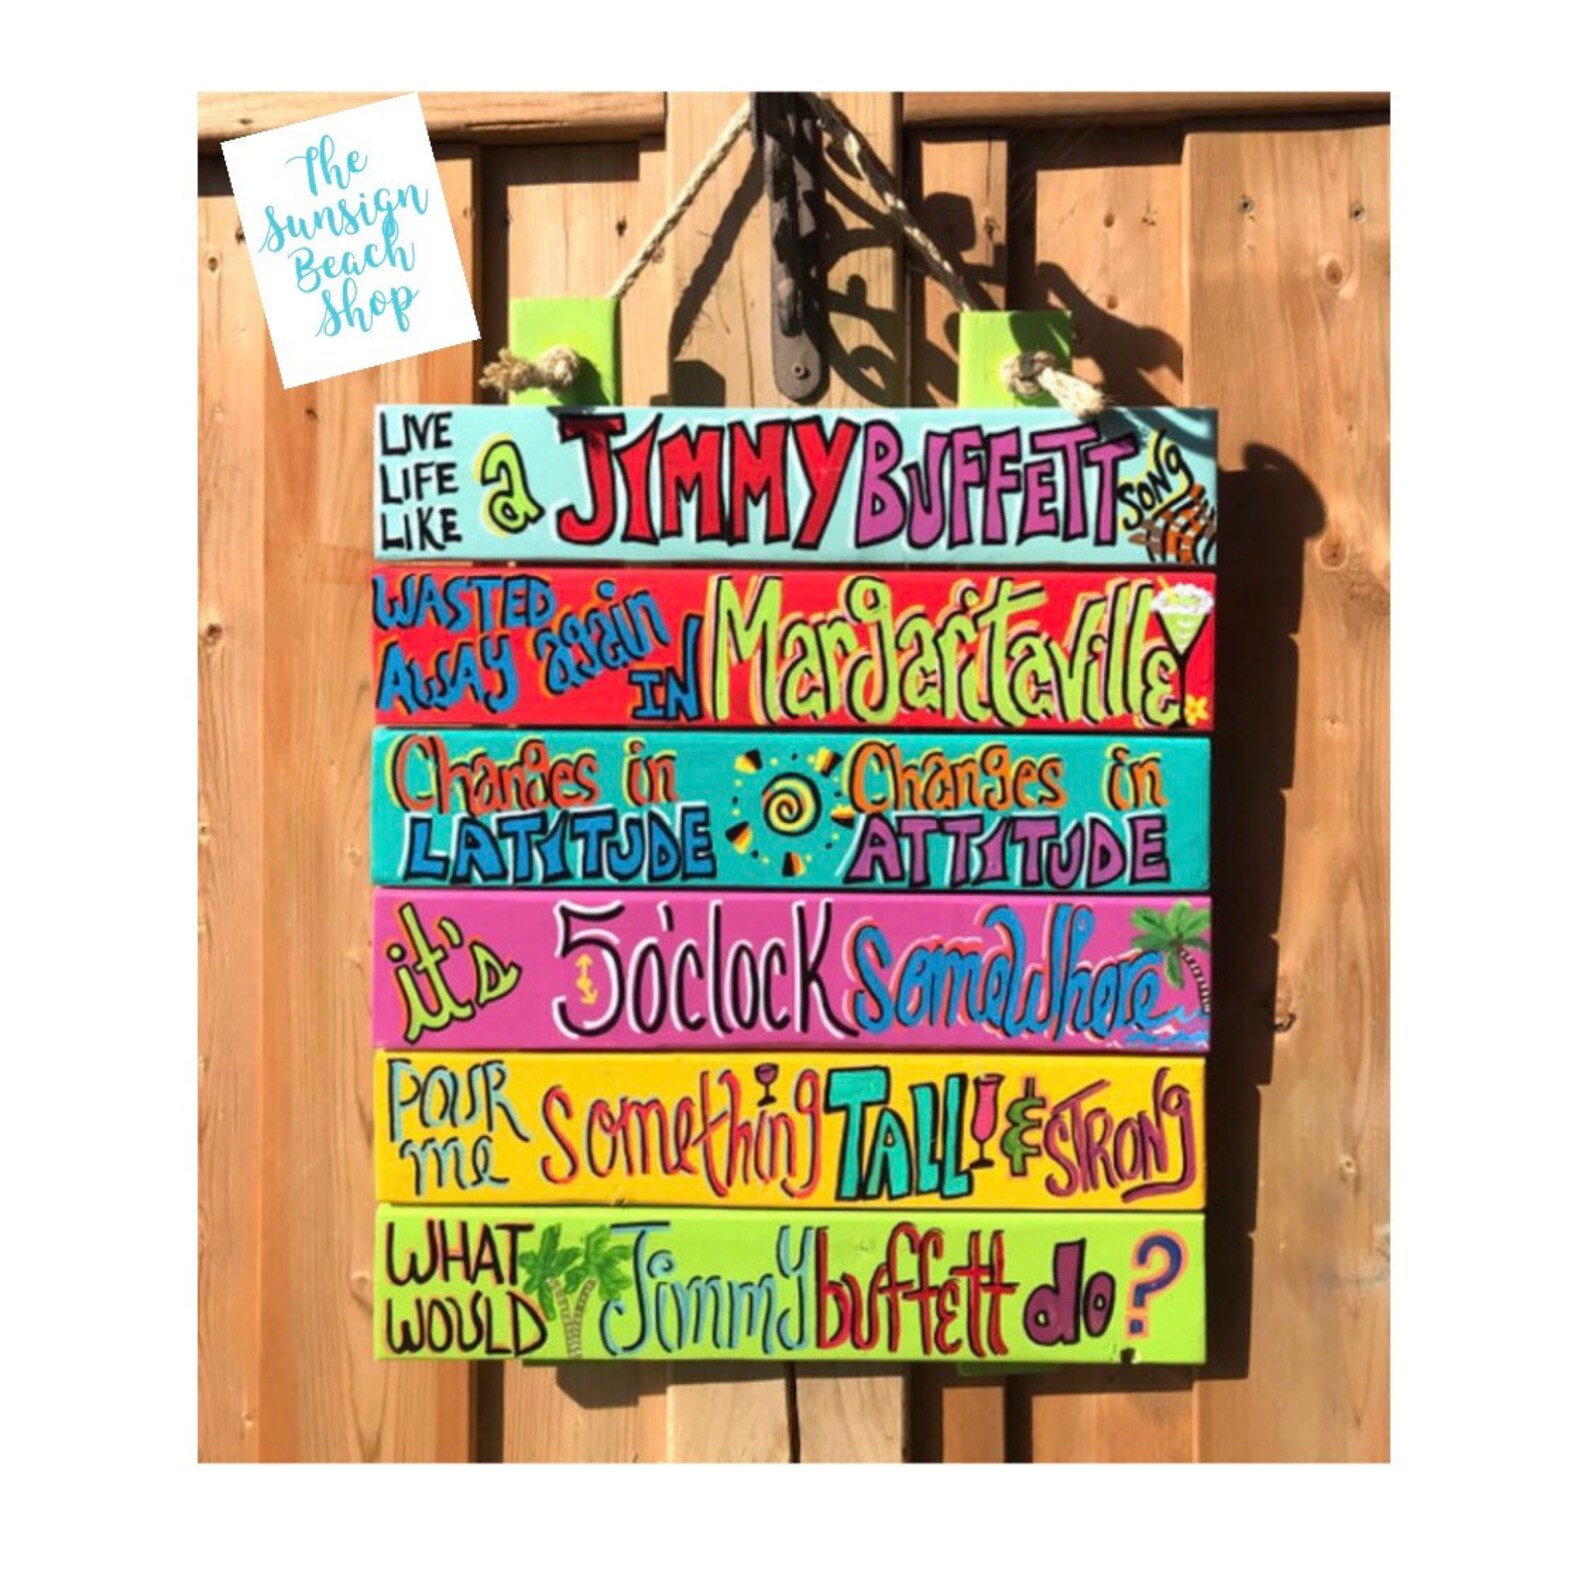 The
Sunsign
Beach
Shop
LIVE
LIFE
LIKE
a JIMMY BUFFETT SONG
WASTED
AWAY again
IN Margaritaville
Changes in
LATITUDE
Changes in
ATTITUDE
it's 5 o'clock somewhere
POUR
me
something TALL & STRONG
WHAT
WOULD
Jimmy buffett do?